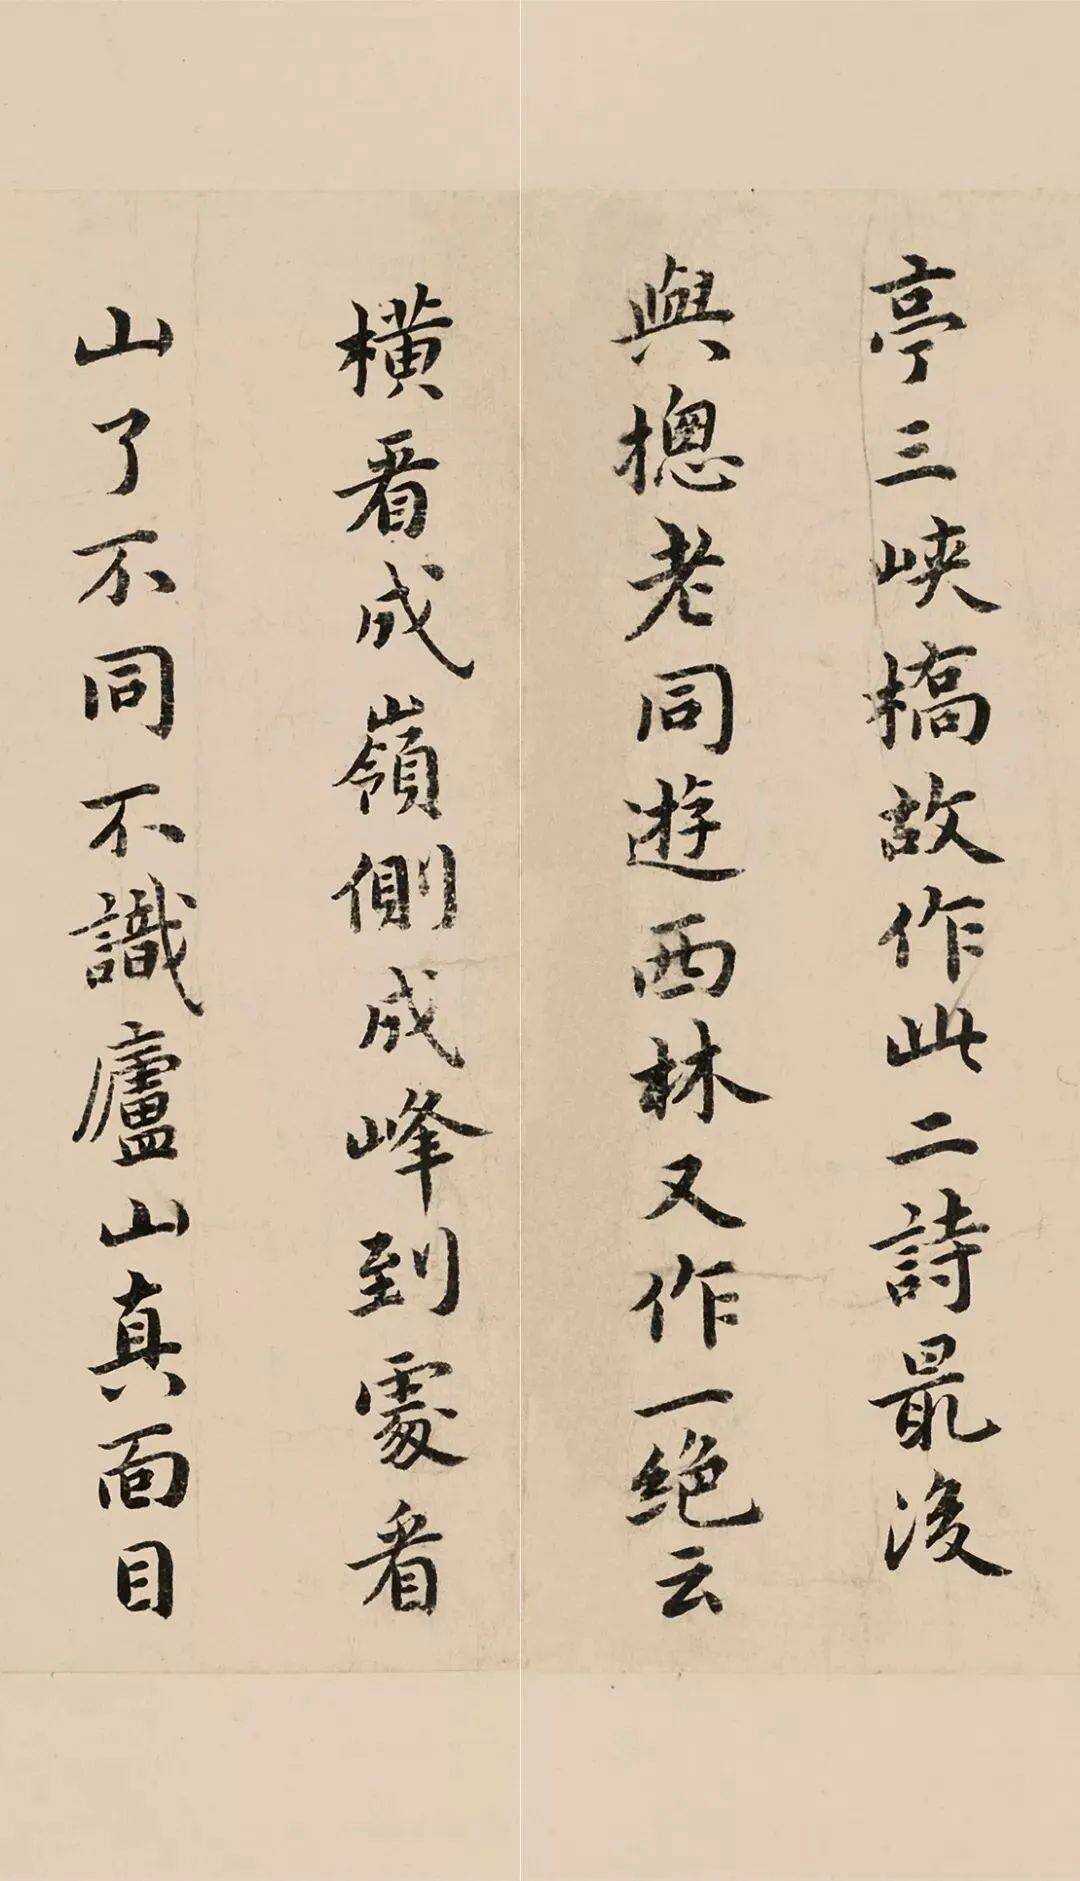 亭三峽橋故作此二詩最後
與摠老同遊西林又作一绝云
橫看成嶺側成峰到處看
山了不同不識廬山真面目